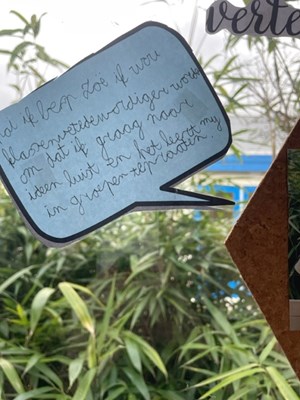 verte
ik Zoë ik wou
klasenvertedewordiger worde
om dat ik graag naar
ideen luist en het leert my
in groepen te praaten